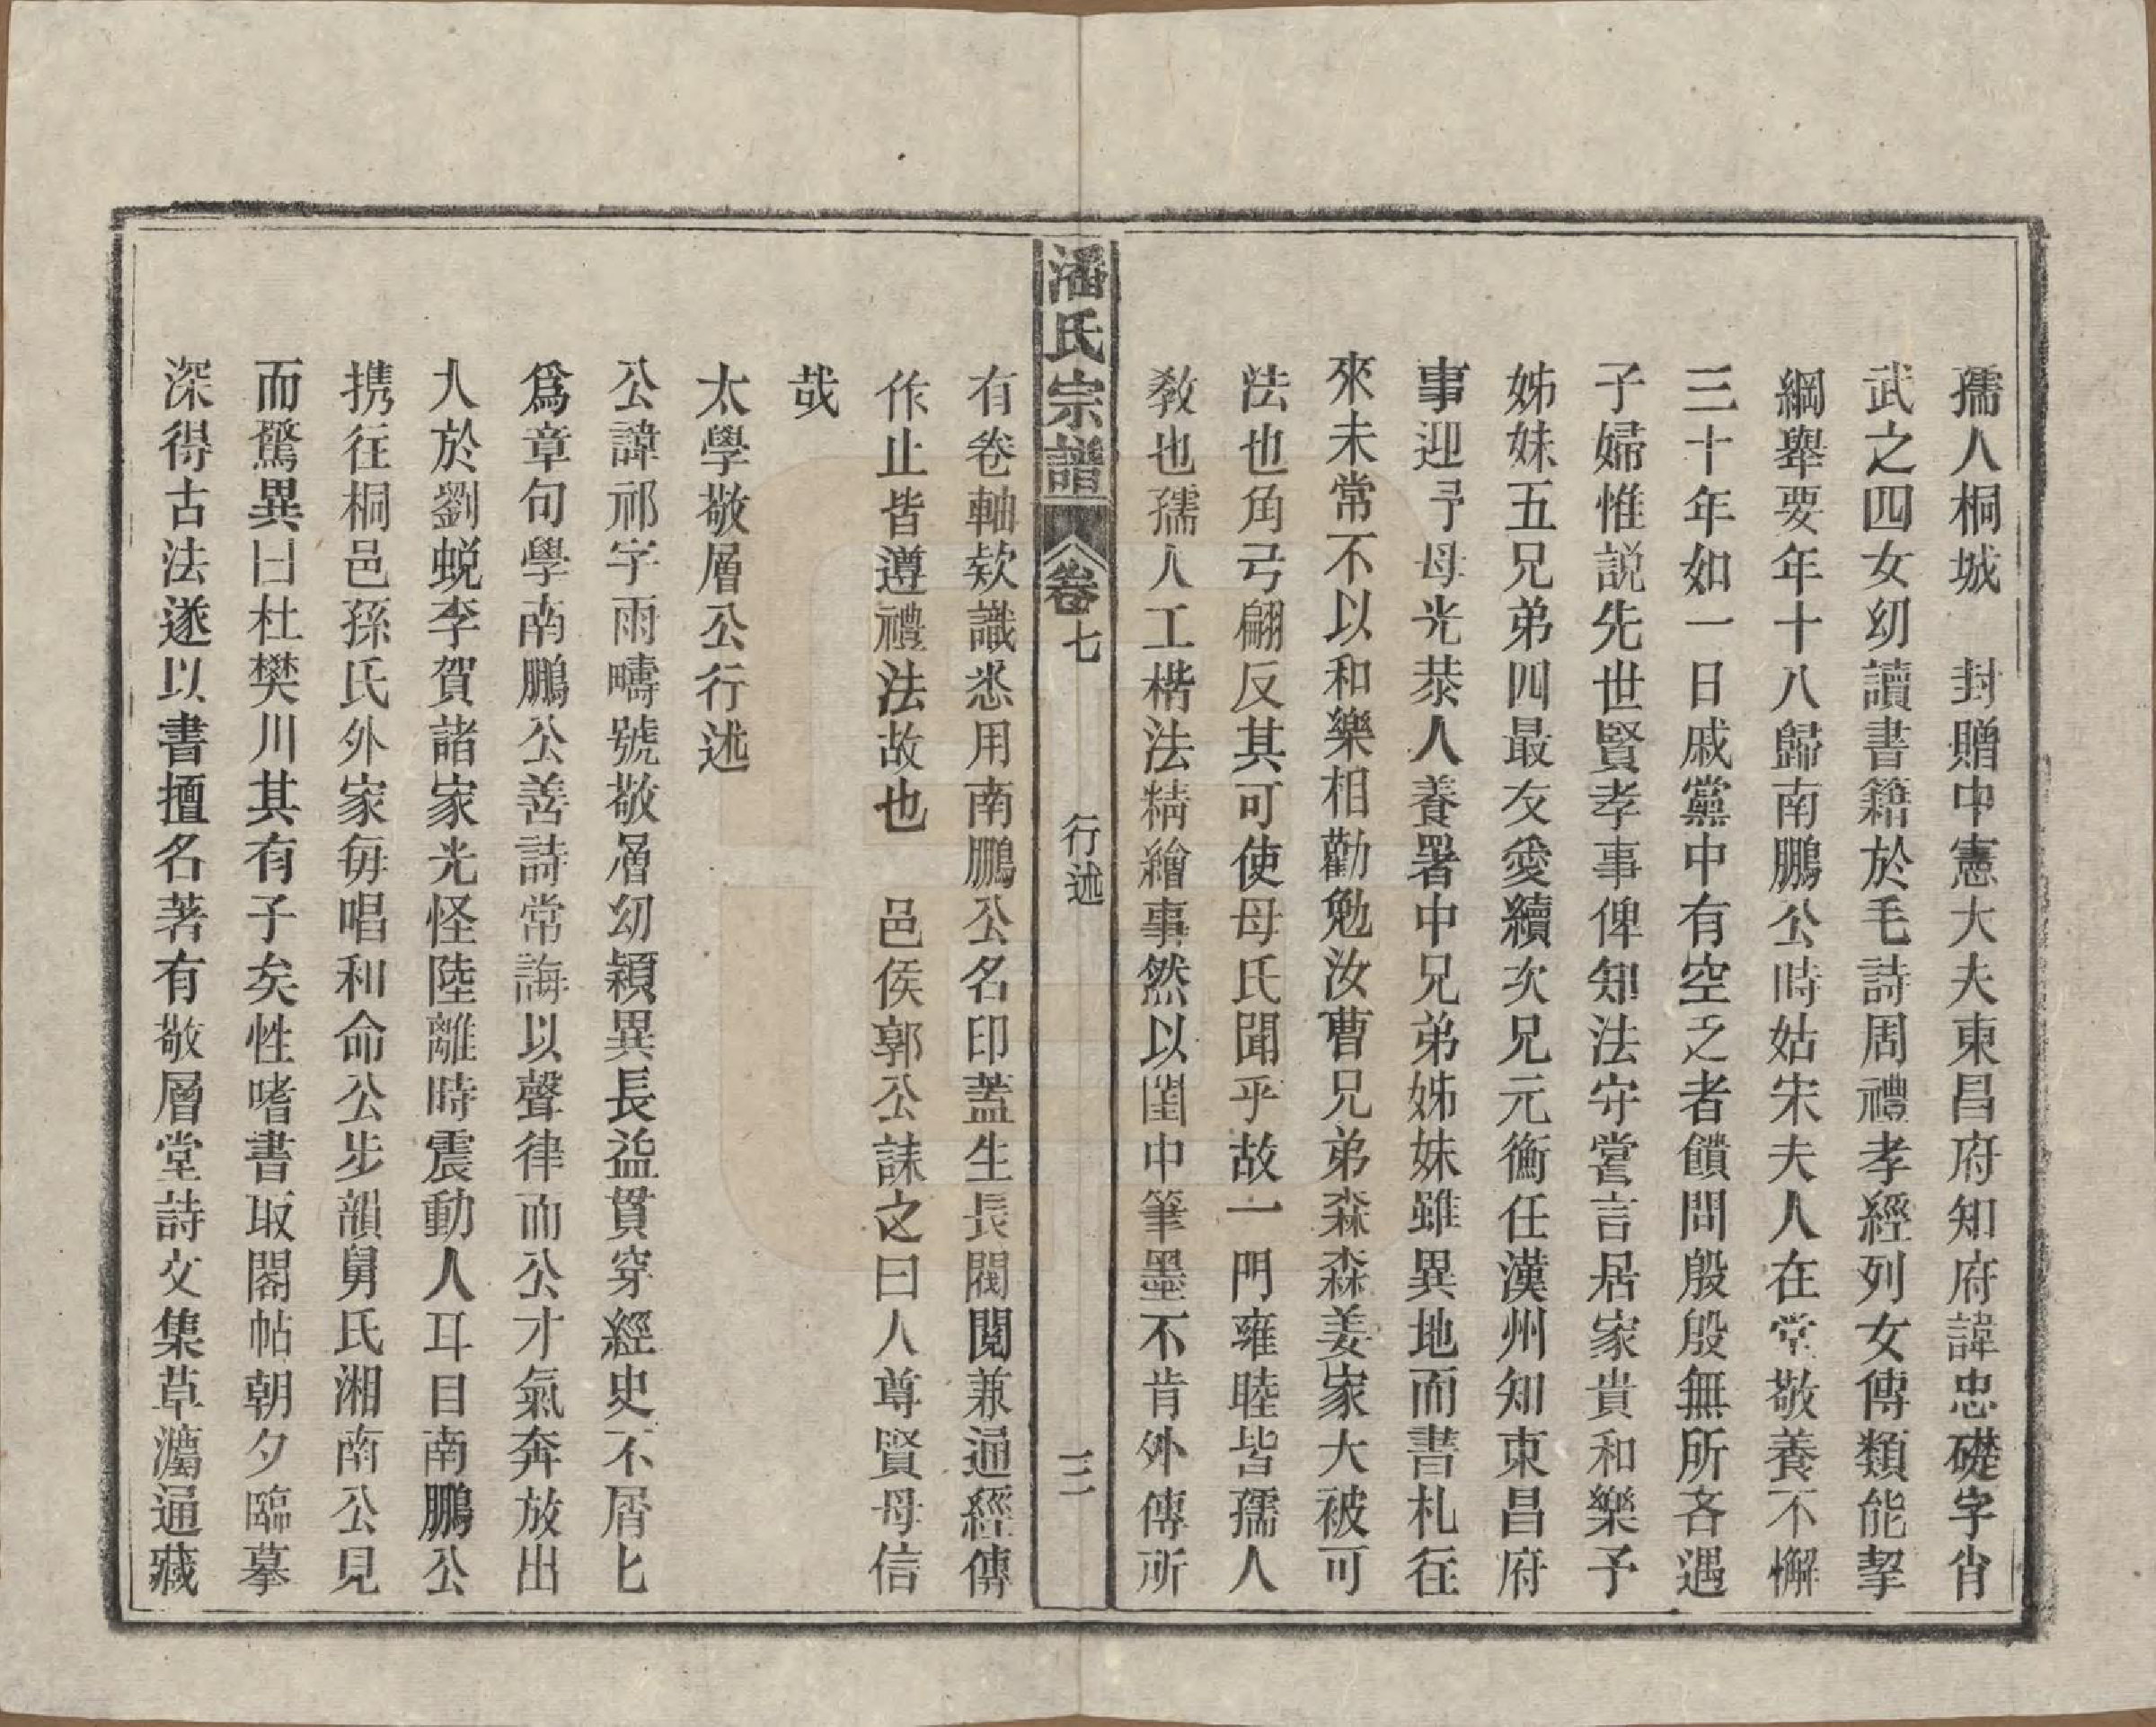 孺人桐城　封贈中憲大夫東昌府知府諱忠礎字肖
武之四女幼讀書籍於毛詩周禮孝經列女傳類能挈
綱舉要年十八歸南鵬公時姑宋夫人在堂敬養不懈
三十年如一日戚黨中有空乏者饋問殷殷無所吝遇
子婦惟説先世賢孝事俾知法守嘗言居家貴和樂予
姊妹五兄弟四最友愛續次兄元衡任漢州知東昌府
事迎予母光恭人養署中兄弟姊妹雖異地而書札往
來未常不以和樂相勸勉汝曹兄弟森森姜家大被可
法也角弓翩反其可使母氏聞乎故一門雍睦皆孺人
敎也孺人工楷法精繪事然以閨中筆墨不肯外傳所
潘氏宗譜　卷七　行述　三
有卷軸欵識悉用南鵬公名印蓋生長閥閱兼通經傳
作止皆遵禮法故也　邑侯郭公誄之曰人尊賢母信
哉
太學敬層公行述
公諱祁字雨疇號敬層幼穎異長益貫穿經史不屑匕
爲章句學南鵬公善詩常誨以聲律而公才氣奔放出
人於劉蛻李賀諸家光怪陸離時震動人耳目南鵬公
携往桐邑孫氏外家每唱和命公步韻舅氏湘南公見
而驚異曰杜樊川其有子矣性嗜書取閣帖朝夕臨摹
深得古法遂以書擅名著有敬層堂詩文集草灋通藏